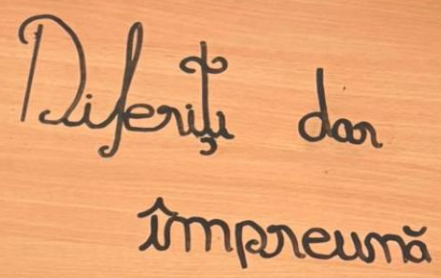 Diferiți dar
împreună